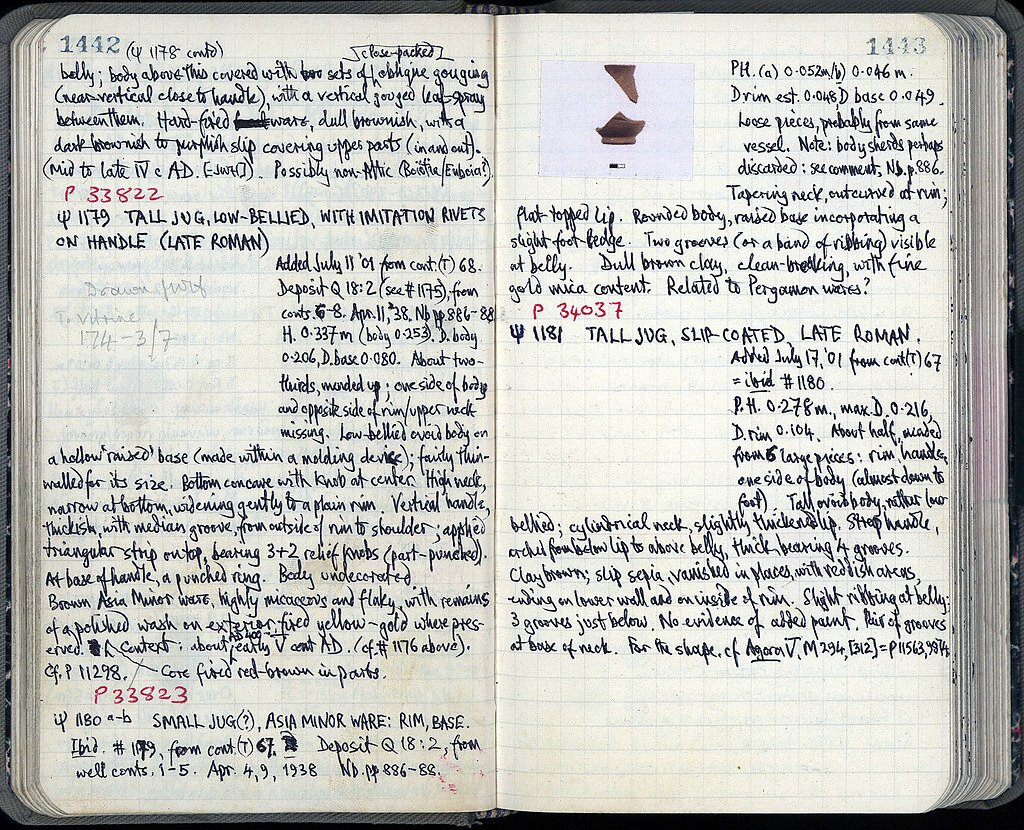 1442 (Ψ 1178 contd) [close-packed]
belly; body above this covered with two sets of oblique gouging
(near-vertical close to handle), with a vertical gouged leaf-spray
between them. Hard-fired ware, dull brownish, with a
dark brownish to purplish slip covering upper parts (in and out).
(Mid to late IV c AD. ). Possibly non-Attic (Boiotia/Euboia?).
P 33822
Ψ 1179 TALL JUG, LOW-BELLIED, WITH IMITATION RIVETS
ON HANDLE (LATE ROMAN)
Added July 11 '01 from cont. (T) 68.
Drawn
Deposit Q 18:2 (see # 1175), from
To Vitrine
conts. 6-8. Apr. 11, '38, Nb pp. 886-88
174-3/7
H. 0.337m (body 0.253). D. body
0.206, D. base 0.080. About two-
thirds, mended up; one side of body
and opposite side of rim/upper neck
missing. Low-bellied ovoid body on
a hollow 'raised' base (made within a molding device; fairly thin-
walled for its size. Bottom concave with knob at center. High neck,
narrow at bottom, widening gently to a plain rim. Vertical handle,
thickish, with median groove, from outside of rim to shoulder; applied
triangular strip on top, bearing 3+2 relief knobs (part-punched).
At base of handle, a punched ring. Body undecorated.
Brown Asia Minor ware, highly micaceous and flaky, with remains
of a polished wash on exterior, fired yellow-gold where pres-
erved. Context: about AD 400 early V cent AD. (cf. # 1176 above).
Cf. P 11298. Core fired red-brown in parts.
P 33823
Ψ 1180 a-b SMALL JUG(?), ASIA MINOR WARE: RIM, BASE.
Ibid. # 1179, from cont. (T) 67. Deposit Q 18:2, from
well conts. 1-5. Apr. 4, 9, 1938 Nb. pp 886-88.
1443
P.H. (a) 0.052m/b) 0.046 m.
D rim est. 0.048 D base 0.049.
Loose pieces, probably from same
vessel. Note: body sherds perhaps
discarded: see comment, Nb. p. 886.
Tapering neck, outcurved at rim;
flat-topped lip. Rounded body, raised base incorporating a
slight foot-ledge. Two grooves (or a band of ribbing) visible
at belly. Dull brown clay, clean-breaking, with fine
gold mica content. Related to Pergamon wares?
P 34037
Ψ 1181 TALL JUG, SLIP-COATED, LATE ROMAN.
Added July 17, '01 from cont (T) 67
= ibid # 1180.
P.H. 0.278 m., max D. 0.216,
D. rim 0.104. About half, mended
from 5 large pieces: rim, handle,
one side of body (almost down to
foot). Tall ovoid body, rather low
bellied; cylindrical neck, slightly thickened lip. Strap handle,
arched from below lip to above belly, thick, bearing 4 grooves.
Clay brown; slip sepia, vanished in places, with reddish areas,
ending on lower wall and on inside of rim. Slight ribbing at belly:
3 grooves just below. No evidence of added paint. Pair of grooves
at base of neck. For the shape, cf Agora V, M 294, [312] = P 11563, 9874.